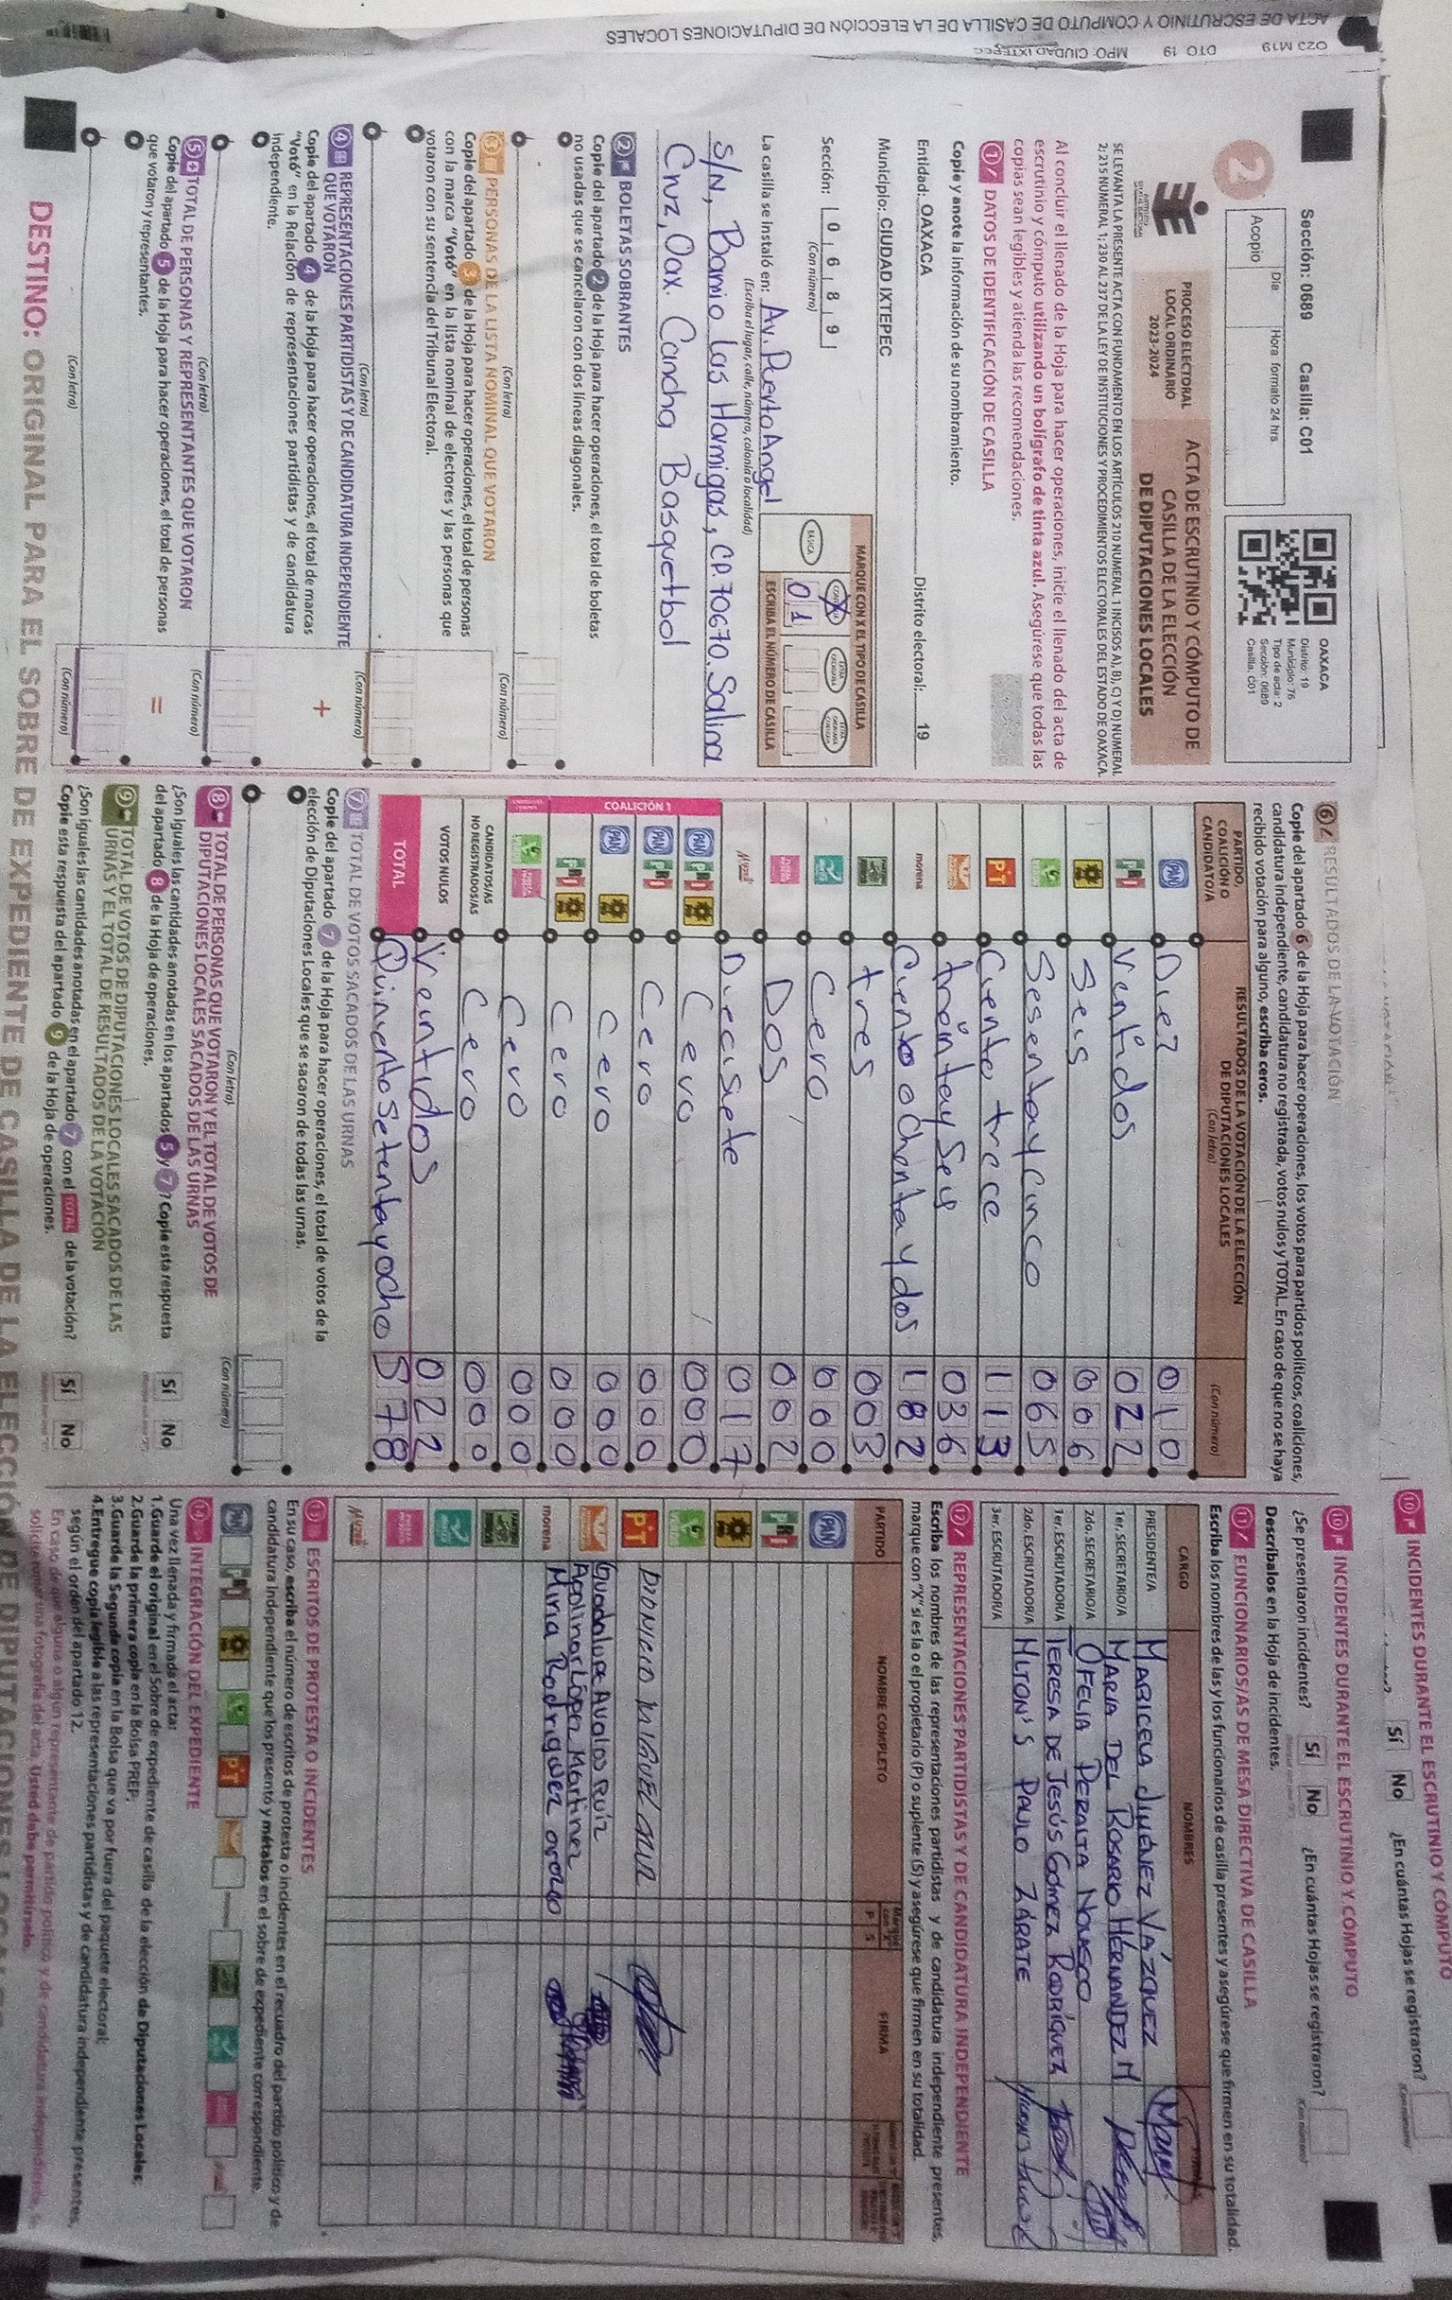 O23 M19 DTO 19 MPO: CIUDAD IXTEPEC
ACTA DE ESCRUTINIO Y CÓMPUTO DE CASILLA DE LA ELECCIÓN DE DIPUTACIONES LOCALES
Sección: 0689 Casilla: C01
2
Día Hora formato 24 hrs.
Acopio
OAXACA
Distrito: 19
Municipio: 76
Tipo de acta: 2
Sección: 0689
Casilla: C01
PROCESO ELECTORAL
LOCAL ORDINARIO
2023-2024
ACTA DE ESCRUTINIO Y CÓMPUTO DE
CASILLA DE LA ELECCIÓN
DE DIPUTACIONES LOCALES
SE LEVANTA LA PRESENTE ACTA CON FUNDAMENTO EN LOS ARTÍCULOS 210 NUMERAL 1 INCISOS A), B), C) Y D) NUMERAL
2; 215 NUMERAL 1; 230 AL 237 DE LA LEY DE INSTITUCIONES Y PROCEDIMIENTOS ELECTORALES DEL ESTADO DE OAXACA.
Al concluir el llenado de la Hoja para hacer operaciones, inicie el llenado del acta de
escrutinio y cómputo utilizando un bolígrafo de tinta azul. Asegúrese que todas las
copias sean legibles y atienda las recomendaciones.
1 DATOS DE IDENTIFICACIÓN DE CASILLA
Copie y anote la información de su nombramiento.
Entidad: OAXACA Distrito electoral: 19
Municipio: CIUDAD IXTEPEC
Sección: 0 6 8 9
(Con número)
MARQUE CON X EL TIPO DE CASILLA
BÁSICA
0 1
ESCRIBA EL NÚMERO DE CASILLA
La casilla se instaló en: Av. Puerto Angel
(Escriba el lugar, calle, número, colonia o localidad)
S/N, Barrio las Hormigas, C.P. 70670. Salina
Cruz, Oax. Cancha Basquetbol
2 BOLETAS SOBRANTES
Copie del apartado 2 de la Hoja para hacer operaciones, el total de boletas
no usadas que se cancelaron con dos líneas diagonales.
(Con letra) (Con número)
3 PERSONAS DE LA LISTA NOMINAL QUE VOTARON
Copie del apartado 3 de la Hoja para hacer operaciones, el total de personas
con la marca "Votó" en la lista nominal de electores y las personas que
votaron con su sentencia del Tribunal Electoral.
(Con letra) (Con número)
4 REPRESENTACIONES PARTIDISTAS Y DE CANDIDATURA INDEPENDIENTE
QUE VOTARON
Copie del apartado 4 de la Hoja para hacer operaciones, el total de marcas
"Votó" en la Relación de representaciones partidistas y de candidatura
independiente.
+
(Con letra) (Con número)
5 TOTAL DE PERSONAS Y REPRESENTANTES QUE VOTARON
Copie del apartado 5 de la Hoja para hacer operaciones, el total de personas
que votaron y representantes.
=
(Con letra) (Con número)
6 RESULTADOS DE LA VOTACIÓN
Copie del apartado 6 de la Hoja para hacer operaciones, los votos para partidos políticos, coaliciones,
candidatura independiente, candidatura no registrada, votos nulos y TOTAL. En caso de que no se haya
recibido votación para alguno, escriba ceros.
PARTIDO,
COALICIÓN O
CANDIDATO/A
RESULTADOS DE LA VOTACIÓN DE LA ELECCIÓN
DE DIPUTACIONES LOCALES
(Con letra) (Con número)
PAN Diez 010
PRI Ventidos 022
PRD Seis 006
Sesentaycinco 065
PT Ciento trece 113
treintayseis 036
morena Ciento ochentaydos 182
tres 003
Cero 000
Dos 002
Diecisiete 017
COALICIÓN 1
PAN PRI PRD Cero 000
PAN PRI Cero 000
PAN PRD Cero 000
PRI PRD Cero 000
Cero 000
CANDIDATOS/AS
NO REGISTRADOS/AS Cero 000
VOTOS NULOS Veintidos 022
TOTAL Quinientosetentayocho 578
7 TOTAL DE VOTOS SACADOS DE LAS URNAS
Copie del apartado 7 de la Hoja para hacer operaciones, el total de votos de la
elección de Diputaciones Locales que se sacaron de todas las urnas.
(Con letra) (Con número)
8 TOTAL DE PERSONAS QUE VOTARON Y EL TOTAL DE VOTOS DE
DIPUTACIONES LOCALES SACADOS DE LAS URNAS
¿Son iguales las cantidades anotadas en los apartados 5 y 7? Copie esta respuesta
del apartado 8 de la Hoja de operaciones.
Sí No
9 TOTAL DE VOTOS DE DIPUTACIONES LOCALES SACADOS DE LAS
URNAS Y EL TOTAL DE RESULTADOS DE LA VOTACIÓN
¿Son iguales las cantidades anotadas en el apartado 7 con el TOTAL de la votación?
Copie esta respuesta del apartado 9 de la Hoja de operaciones.
Sí No
10 INCIDENTES DURANTE EL ESCRUTINIO Y CÓMPUTO
Sí No ¿En cuántas Hojas se registraron?
10 INCIDENTES DURANTE EL ESCRUTINIO Y CÓMPUTO
¿Se presentaron incidentes? Sí No ¿En cuántas Hojas se registraron?
Descríbalos en la Hoja de incidentes.
11 FUNCIONARIOS/AS DE MESA DIRECTIVA DE CASILLA
Escriba los nombres de las y los funcionarios de casilla presentes y asegúrese que firmen en su totalidad.
CARGO NOMBRES
PRESIDENTE/A MARICELA JIMÉNEZ VÁZQUEZ
1er. SECRETARIO/A MARIA DEL ROSARIO HERNANDEZ M
2do. SECRETARIO/A OFELIA PERALTA NOLASCO
1er. ESCRUTADOR/A TERESA DE JESÚS GÓMEZ RODRÍGUEZ
2do. ESCRUTADOR/A MILTON'S PAULO ZÁRATE
3er. ESCRUTADOR/A
12 REPRESENTACIONES PARTIDISTAS Y DE CANDIDATURA INDEPENDIENTE
Escriba los nombres de las representaciones partidistas y de candidatura independiente presentes,
marque con "X" si es la o el propietario (P) o suplente (S) y asegúrese que firmen en su totalidad.
PARTIDO NOMBRE COMPLETO P S FIRMA
PAN
PRI
PRD
PT DIONICIO MIGUEL
Guadalupe Avalos Ruíz
Apolinar López Martinez
morena Miria Rodriguez orozco
13 ESCRITOS DE PROTESTA O INCIDENTES
En su caso, escriba el número de escritos de protesta o incidentes en el recuadro del partido político y de
candidatura independiente que los presentó y métalos en el sobre de expediente correspondiente.
14 INTEGRACIÓN DEL EXPEDIENTE
Una vez llenada y firmada el acta:
1.Guarde el original en el Sobre de expediente de casilla de la elección de Diputaciones Locales;
2.Guarde la primera copia en la Bolsa PREP;
3.Guarde la Segunda copia en la Bolsa que va por fuera del paquete electoral;
4.Entregue copia legible a las representaciones partidistas y de candidatura independiente presentes,
según el orden del apartado 12.
En caso de que alguna o algún representante de partido político y de candidatura independiente, le
solicite tomar una fotografía del acta, Usted debe permitírselo.
DESTINO: ORIGINAL PARA EL SOBRE DE EXPEDIENTE DE CASILLA DE LA ELECCIÓN DE DIPUTACIONES LOCALES